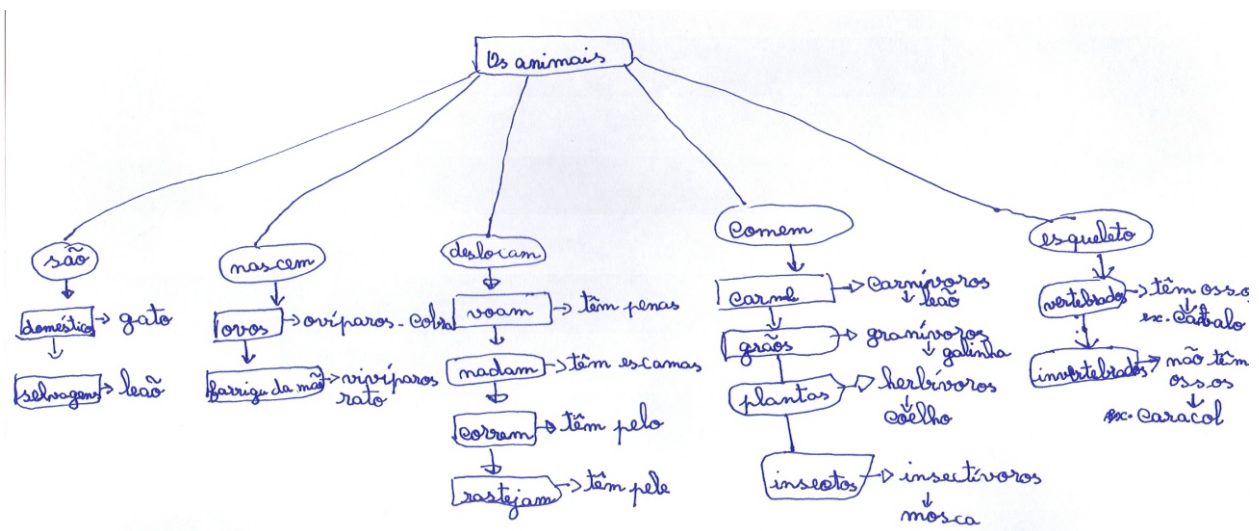 Os animais
são
doméstico → gato
selvagens → leão
nascem
ovos → ovíparos - cobra
barriga da mãe → vivíparos
rato
deslocam
voam → têm penas
nadam → têm escamas
correm → têm pelo
rastejam → têm pele
comem
carne → carnívoros
leão
grãos → granívoros
galinha
plantas → herbívoros
coelho
insectos → insectívoros
mosca
esqueleto
vertebrados → têm ossos
ex. cavalo
invertebrados → não têm
ossos
ex. caracol